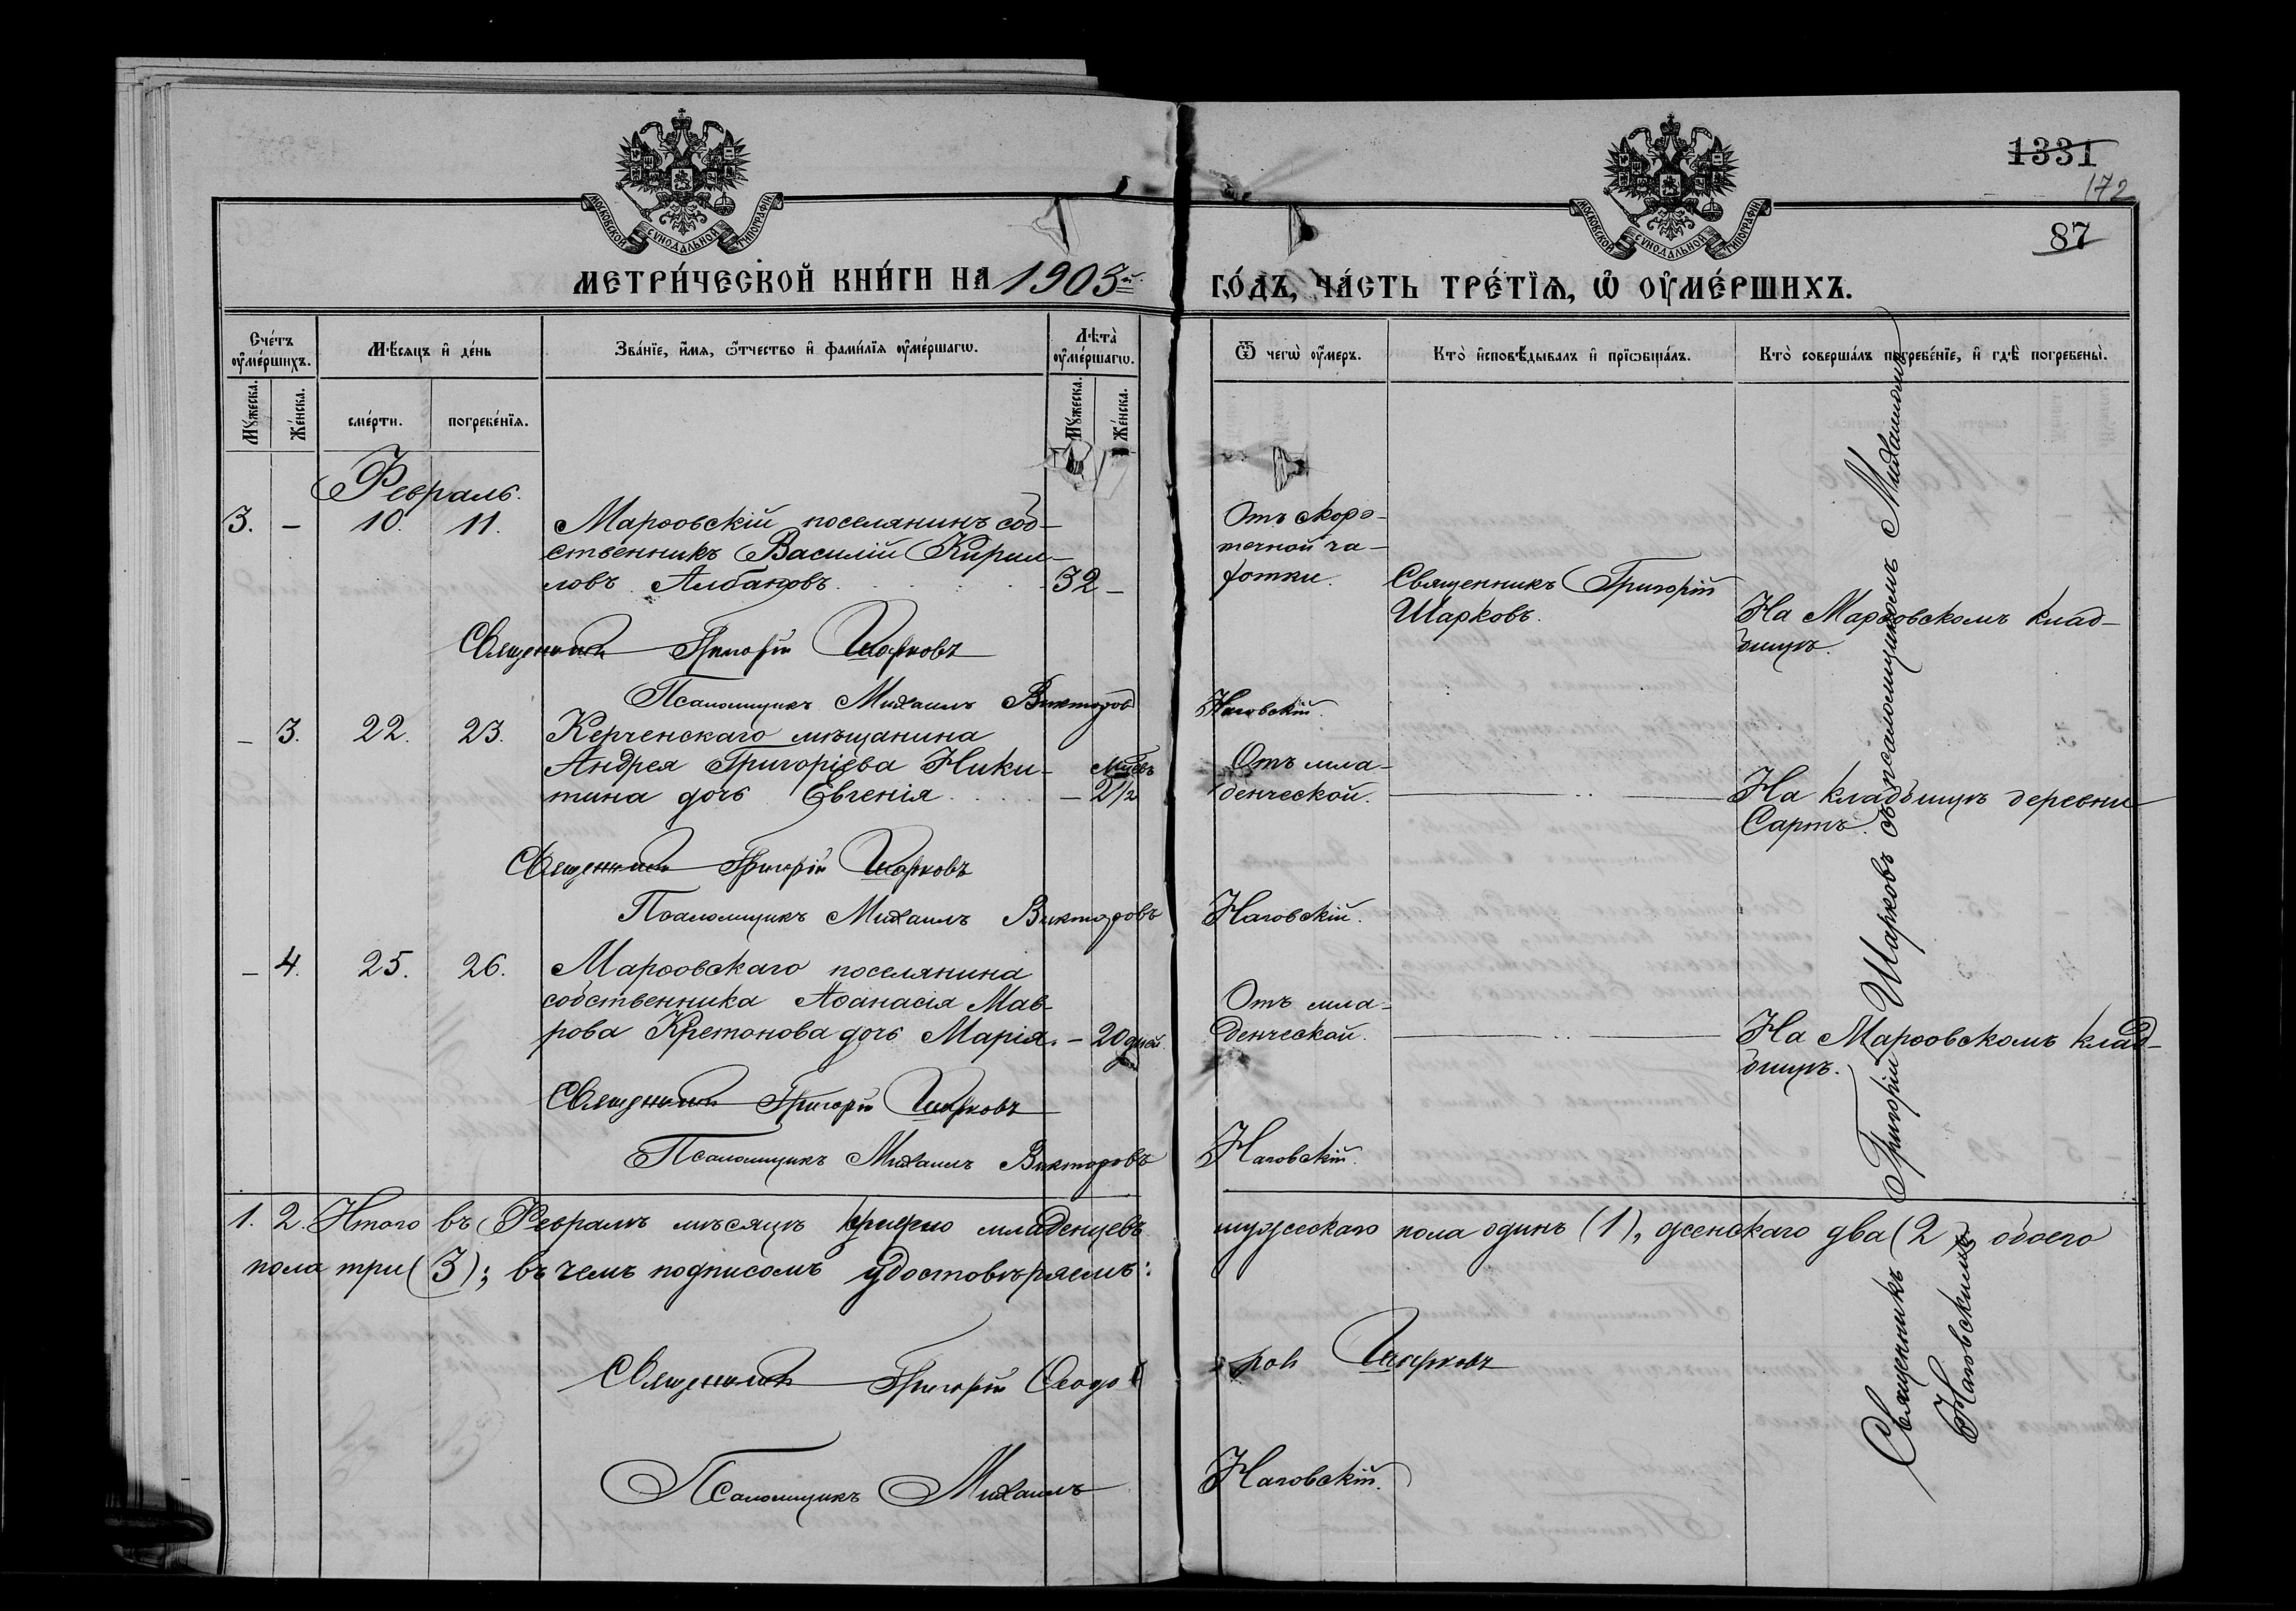 1331
172
87
МОСКОВСКОЙ СУНОДАЛЬНОЙ ТИПОГРАФІИ
МОСКОВСКОЙ СУНОДАЛЬНОЙ ТИПОГРАФІИ
МЕТРИ́ЧЕСКОЙ КНИ́ГИ НА 1903й
ГО́ДЪ, ЧА́СТЬ ТРЕ́ТЇѦ, Ѽ ОУ҆МЕ́РШИХЪ.
Сче́тъ оу҆ме́ршихъ.
Мꙋ́жеска.
Же́нска.
Мѣ́сѧцъ и҆ де́нь
сме́рти.
погребе́нїѧ.
Зва́нїе, и҆́мѧ, ѻ҆́тчество и҆ фами́лїѧ оу҆ме́ршагѡ.
Лѣ́та оу҆ме́ршагѡ.
Мꙋ́жеска.
Же́нска.
Ѿ чегѡ̀ оу҆́меръ.
Кто̀ и҆сповѣ́дывалъ и҆ прїѡбща́лъ.
Кто̀ соверша́лъ погребе́нїе, и҆ гдѣ̀ погребены̀.
Февраль.
3. — 10. 11. Марѳовскій поселянинъ соб-
ственникъ Василій Кирил-
ловъ Албаковъ. 32 —
Отъ скоро-
течной ча-
хотки.
Священникъ Григорій
Шарковъ.
На Марѳовскомъ клад-
бищѣ.
Священникъ Григорій Шарковъ
Псаломщикъ Михаилъ Викторовъ Наговскій.
— 3. 22. 23. Керченскаго мѣщанина
Андрея Григоріева Ники-
тина дочь Евгенія — 2½ м-цевъ
Отъ мла-
денческой.
На кладбищѣ деревни
Сартъ.
Священникъ Григорій Шарковъ
Псаломщикъ Михаилъ Викторовъ Наговскій.
— 4. 25. 26. Марѳовскаго поселянина
собственника Аѳанасія Мав-
рова Кретонова дочь Марія. — 20 дней
Отъ мла-
денческой.
На Марѳовскомъ клад-
бищѣ.
Священникъ Григорій Шарковъ
Псаломщикъ Михаилъ Викторовъ Наговскій.
1. 2. Итого въ Февралѣ мѣсяцѣ умерло младенцевъ мужескаго пола одинъ (1), женскаго два (2), обоего
пола три (3); въ чемъ подписомъ удостовѣряемъ:
Священникъ Григорій Ѳеодоровъ Шарковъ
Псаломщикъ Михаилъ Наговскій.
Священникъ Григорій Шарковъ съ псаломщикомъ Михаиломъ
Наговскимъ